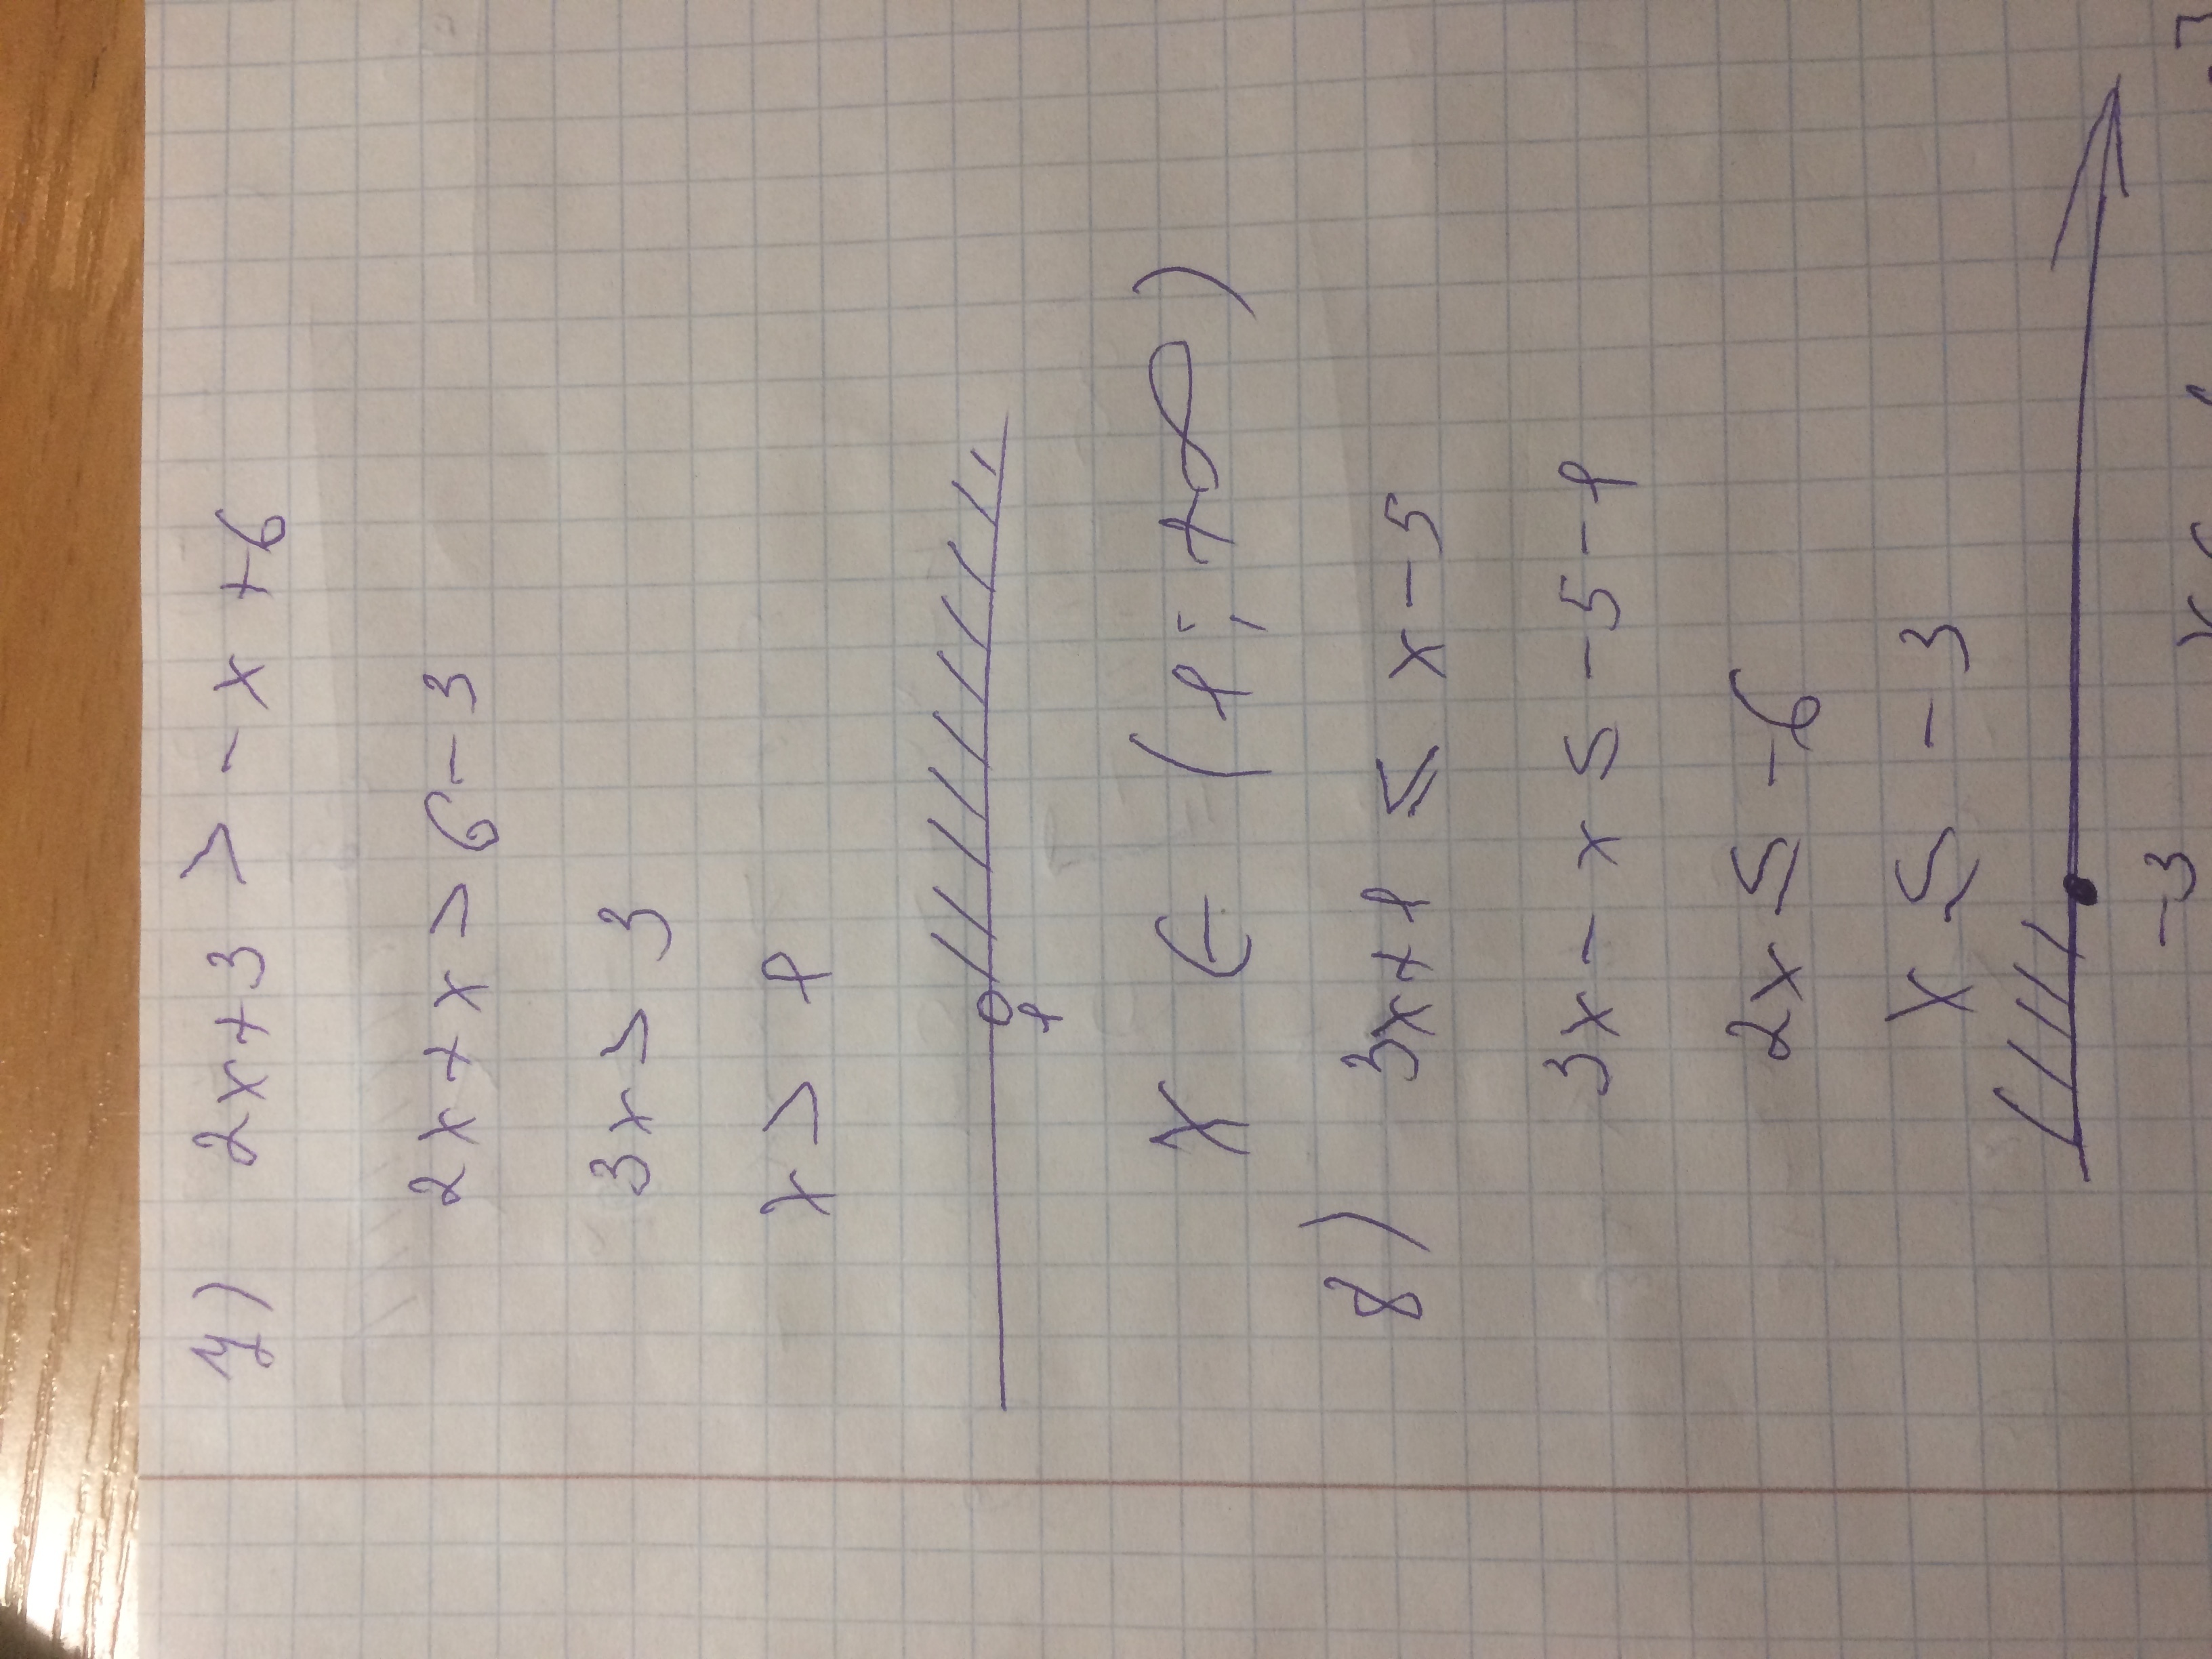 у) 2x+3 > -x +6
2x+x > 6-3
3x > 3
x > 1
1
x ∈ (1; +∞)
8) 3x+1 ≤ x-5
3x-x ≤ -5-1
2x ≤ -6
x ≤ -3
-3